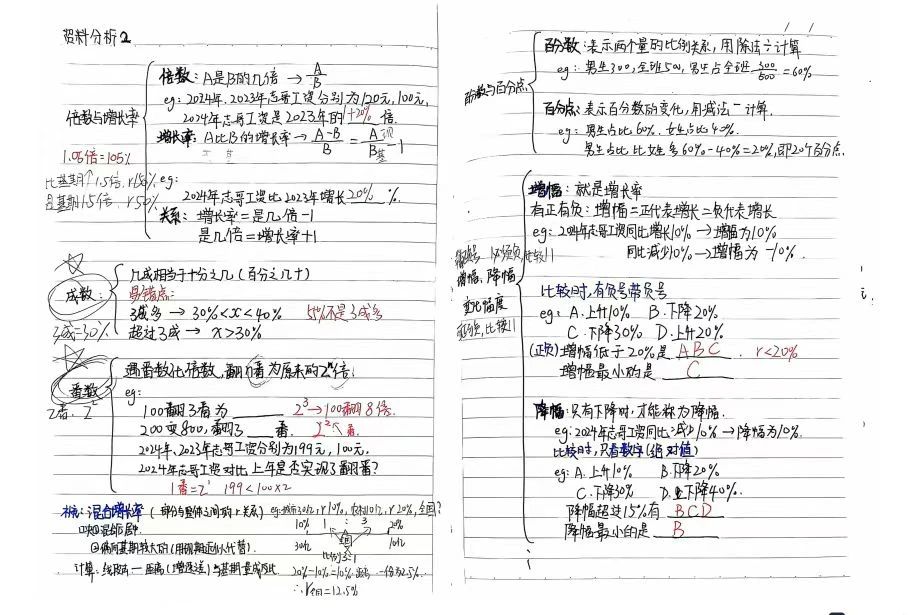 资料分析2
倍数与增长率
倍数:A是B的几倍 → A/B
eg:2024年、2023年志哥工资分别为120元,100元,
2024年志哥工资是2023年的 1+20% 倍.
增长率:A比B的增长率 → A-B/B = A现/B基 -1
1.05倍=105%
比基期↑1.5倍,r150%
是基期1.5倍,r50%
eg:
2024年志哥工资比2023年增长 20% %.
关系:增长率=是几倍-1
是几倍=增长率+1
成数:
3成=30%
几成相当于十分之几(百分之几十)
易错点:
3成多 → 30%<x<40% 51%不是3成多
超过3成 → x>30%
番数
2番:2²
遇番数化倍数,翻n番为原来的2ⁿ倍;
eg:
100翻3番为 2³→100翻8倍.
200变800,翻了 番. 2²2番.
2024年、2023年志哥工资分别为199元,100元,
2024年志哥工资对比上年是否实现了翻番?
1番=2¹ 199<100×2
混合增长率(部分与整体之间的r关系)
10% 1 : 3 20%
30亿 10亿
比例3:1
20%-10%=10% 一份为2.5%
∴r全国=12.5%
百分数与百分点
百分数:表示两个量的比例关系,用除法÷计算
eg:男生300,全班500,男生占全班 300/500=60%
百分点:表示百分数的变化,用减法-计算.
eg:男生占比60%,女生占比40%.
男生占比比女生多60%-40%=20%,即20个百分点.
增幅、降幅
变化幅度
增幅:就是增长率
有正有负:增幅=正代表增长=负代表增长
eg:2024年志哥工资同比增长10% → 增幅为10%
同比减少10% → 增幅为-10%.
比较时,有负号带负号
eg:A.上升10% B.下降20%
C.下降30% D.上升20%
(正负)增幅低于20%是 ABC . r<20%
增幅最小的是 C
降幅:只有下降时,才能称为降幅.
eg:2024年志哥工资同比减少10% → 降幅为10%.
比较时,只看数字(绝对值)
eg:A.上升10% B.下降20%
C.下降30% D.下降40%.
降幅超过15%有 BCD
降幅最小的是 B